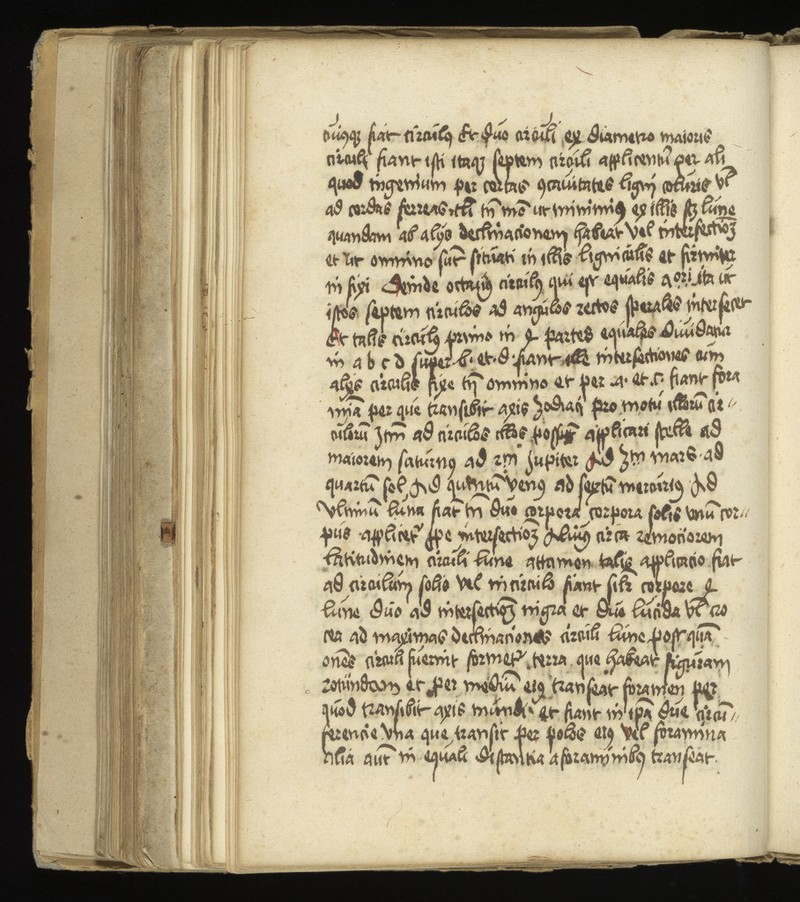 fiat circulus Et duo circuli ex diametro maioris
circuli fiant isti itaque septem circuli applicentur per ali
quod ingenium per certas concavitates ligni vel
ad cordas ferreas tamen ut minimus ex illis lune
quandam ab alijs declinacionem habeat vel intersectionem
et ut omnino sunt situati in illis ligniculis et firmiter
in fixi Deinde octavus circulus qui est equalis ita ut
istos septem circulos ad angulos rectos sperales intersecet
Et talis circulus primo in 4 partes equales dividatur
in a b c d super .b. et .d. fiant ille intersectiones cum
alijs circulis fixe tamen omnino et per .a. et .c. fiant fora
mina per que transibit axis zodiaci pro motu illorum cir
culorum Item ad circulos illos possunt applicari stelle ad
maiorem saturnus ad 2m Jupiter Ad 3m mars ad
quartum sol Ad quintum venus ad sextum mercurius Ad
ultimum luna fiant tamen duo corpora corpora solis unum cor
pus applicetur prope intersectionem Alius circa remociorem
latitudinem circuli lune attamen talis applicacio fiat
ad circulum solis vel in circulo fiant similiter corpore 4
lune duo ad intersectionem nigra et duo lucida vel cro
cea ad maximas declinaciones circuli lune post quam
omnes circuli fuerint formetur terra que habeat figuram
rotundam et per medium eius transeat foramen per
quod transibit axis mundi et fiant in ipsa due circum
ferencie una que transit per polos eius vel foramina
alia autem in equali distantia a foraminibus transeat.